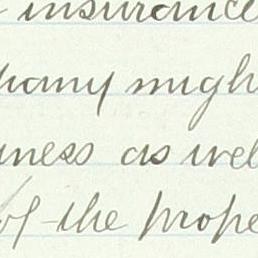 insurance
pany migh
iness as wel
of the prope